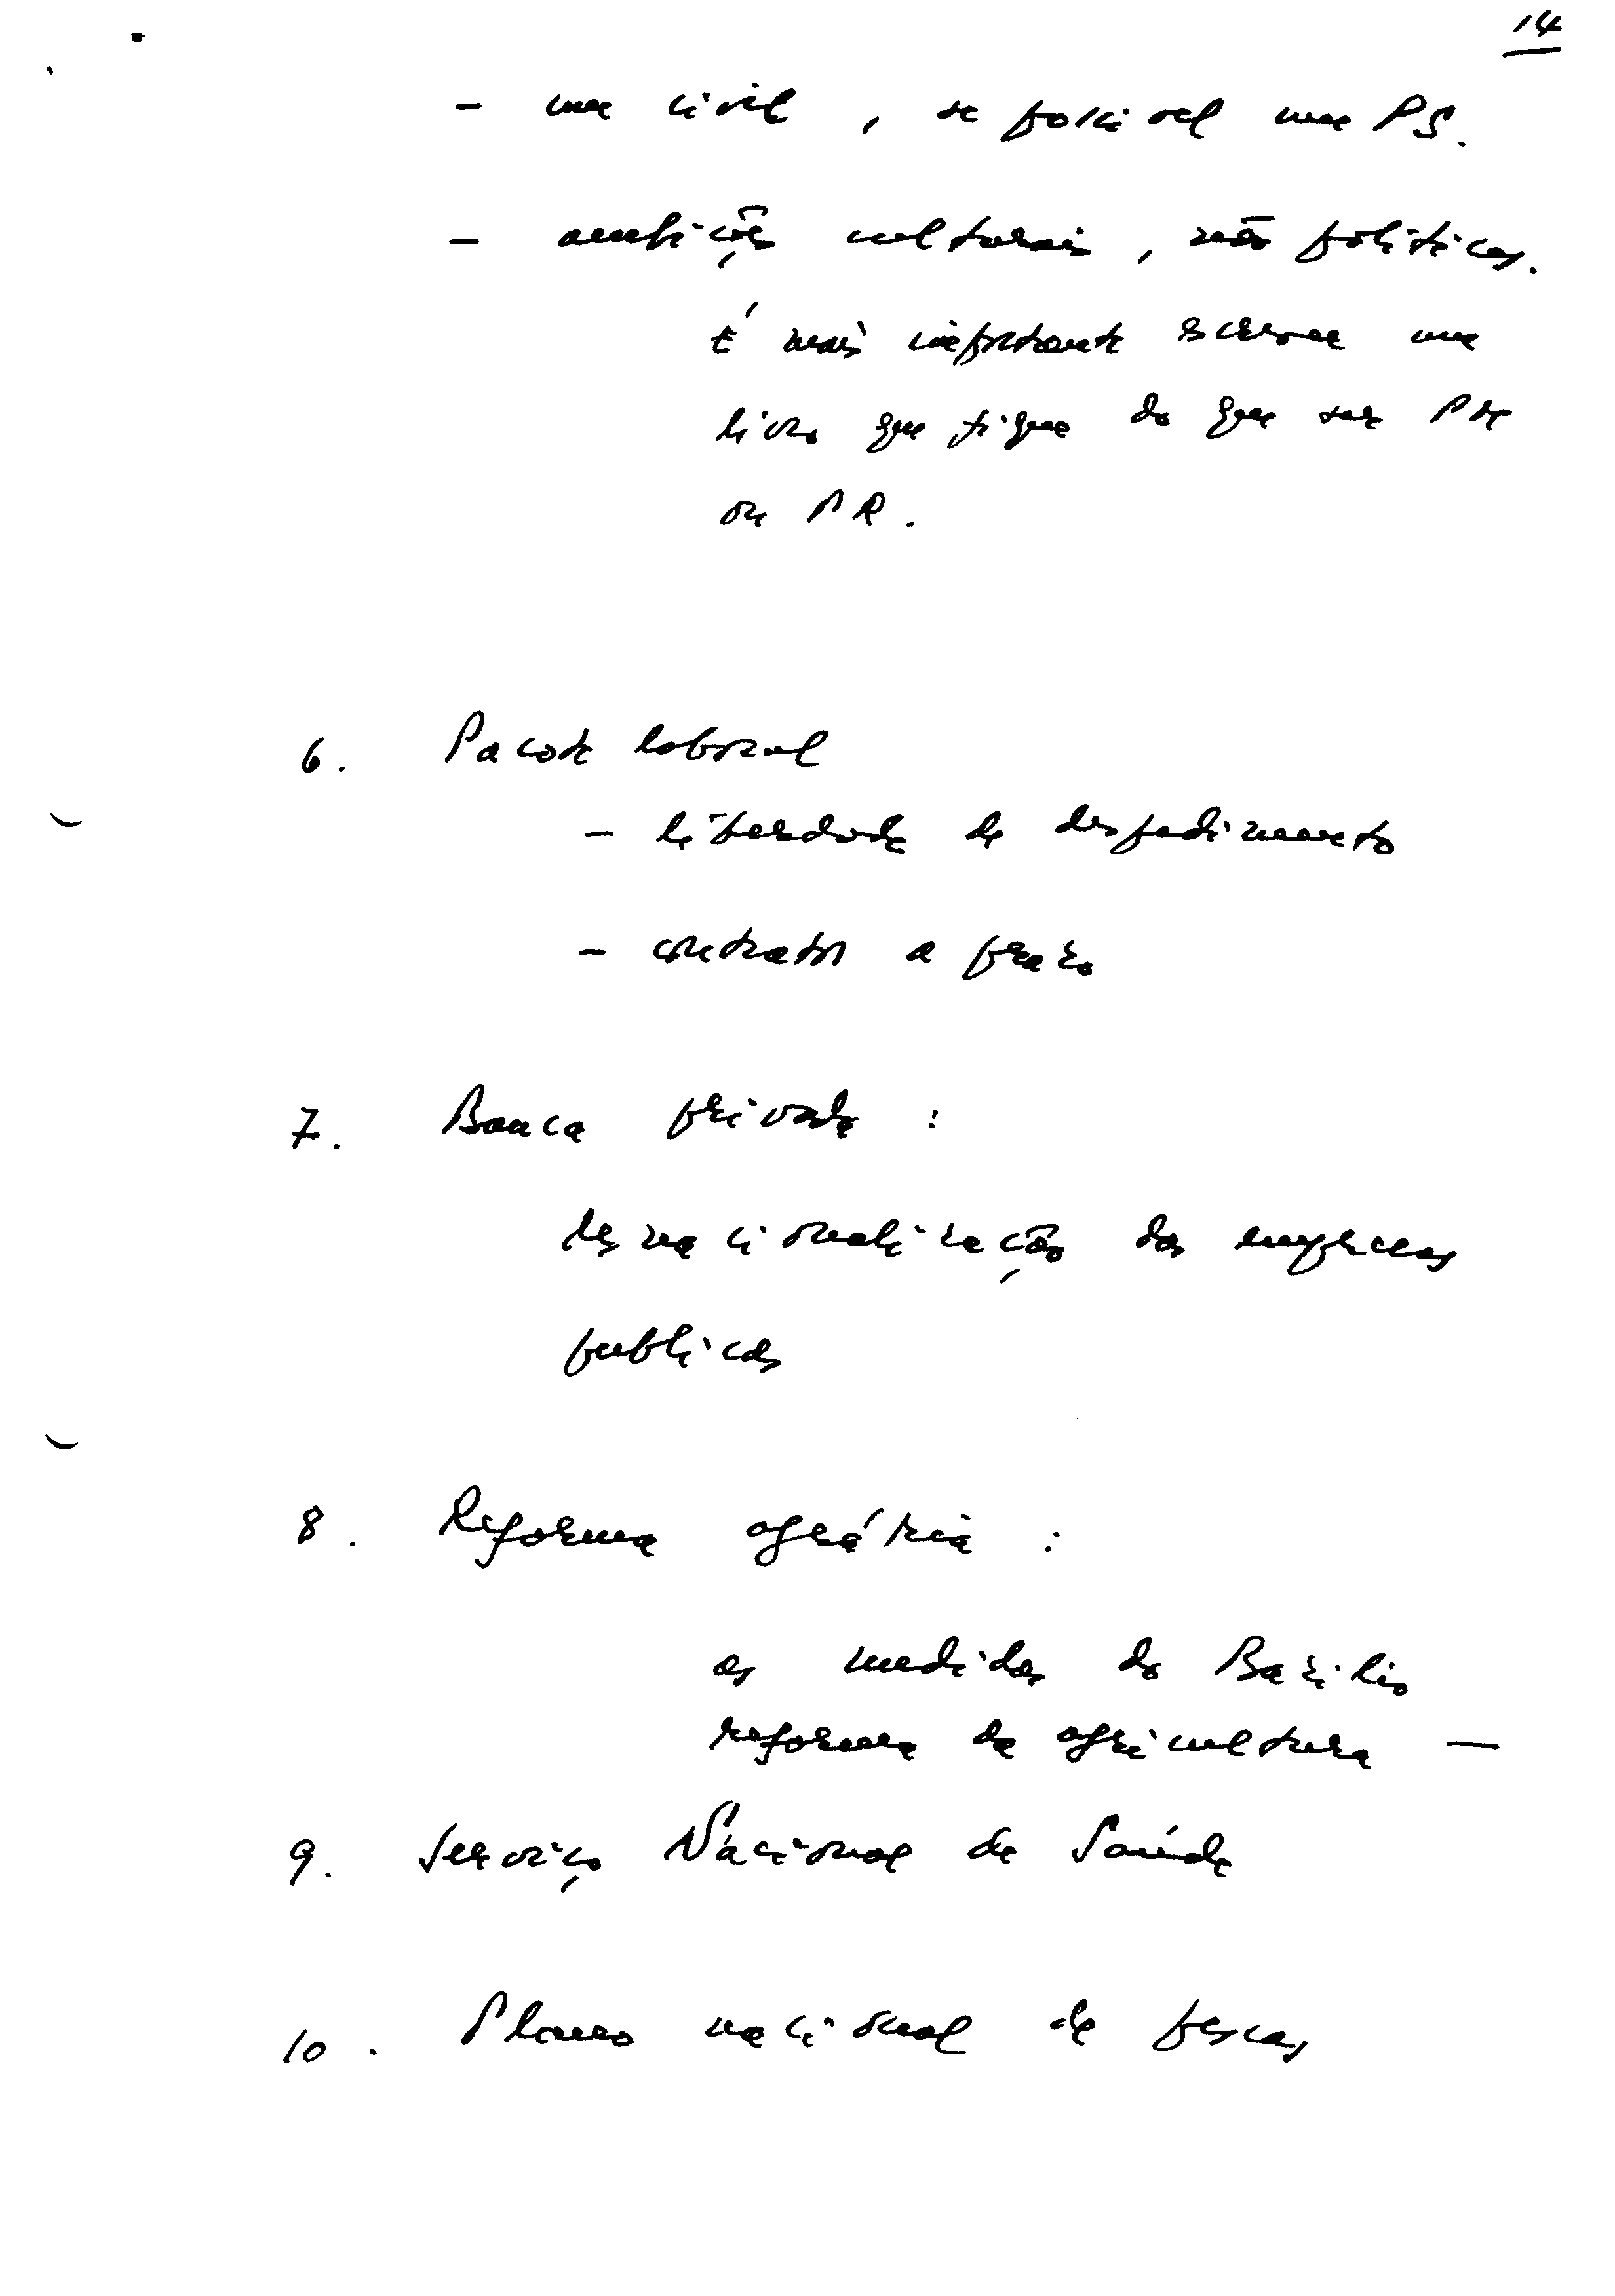 14
- um civil, se possivel um PS.
- ambições culturais, não políticas.
É mais importante escrever um
livro que fique do que ser PM
ou PR.
6. Pacote laboral
- liberdade de despedimento
- contratos a prazo
7. Banca privada :
desnacionalização das empresas
publicas
8. Reforma agrária :
as medidas do Bazilio
reforma da agricultura —
9. Serviço Nacional de Saúde
10. Plano nacional de pescas